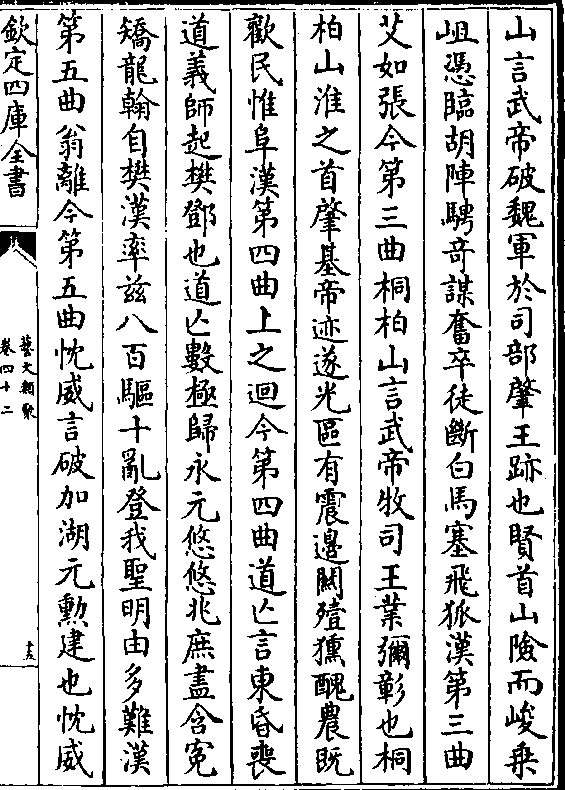 山言武帝破魏軍於司部肇王跡也賢首山險而峻乗
岨憑臨胡陣騁奇謀奮卒徒斷白馬塞飛狐漢第三曲
艾如張今第三曲桐柏山言武帝牧司王業彌彰也桐
柏山淮之首肇基帝迹遂光區有震邊關殪獯醜農既
歡民惟阜漢第四曲上之迴今第四曲道亡言東昏喪
道義師起樊鄧也道亡數極歸永元悠悠兆庶盡含寃
矯龍翰自樊漢率兹八百驅十亂登我聖明由多難漢
第五曲翁離今第五曲忱威言破加湖元勲建也忱威
欽定四庫全書
藝文類聚
卷四十二
十五